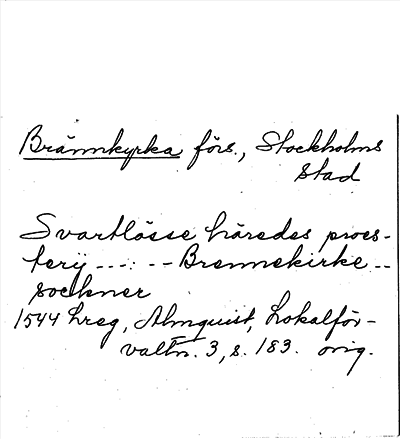 Brännkyrka förs., Stockholms
stad
Svartlösse häredes proes-
terij ---:-- Brennekirke --
sockner
1544 Lreg, Almquist, Lokalför-
valtn. 3, s. 183. orig.